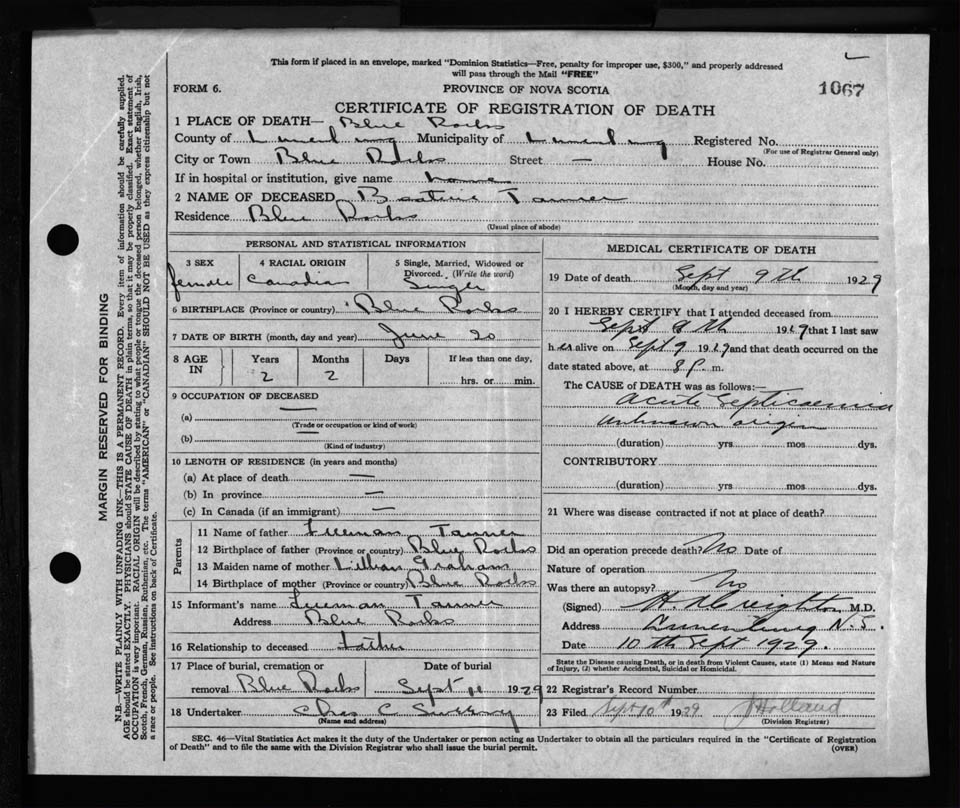 This form if placed in an envelope, marked "Dominion Statistics—Free, penalty for improper use, $300," and properly addressed
will pass through the Mail "FREE"
FORM 6.
PROVINCE OF NOVA SCOTIA
1067
CERTIFICATE OF REGISTRATION OF DEATH
1 PLACE OF DEATH— Blue Rocks
County of Lunenburg Municipality of Lunenburg Registered No.
(For use of Registrar General only)
City or Town Blue Rocks Street — House No.
If in hospital or institution, give name home
2 NAME OF DECEASED Tanner
Residence Blue Rocks
(Usual place of abode)
PERSONAL AND STATISTICAL INFORMATION
3 SEX
female
4 RACIAL ORIGIN
Canadian
5 Single, Married, Widowed or
Divorced. (Write the word)
Single
6 BIRTHPLACE (Province or country) Blue Rocks
7 DATE OF BIRTH (month, day and year) June 20
8 AGE IN
Years 2
Months 2
Days
If less than one day,
hrs. or min.
9 OCCUPATION OF DECEASED
(a) —
(Trade or occupation or kind of work)
(b)
(Kind of industry)
10 LENGTH OF RESIDENCE (in years and months)
(a) At place of death —
(b) In province —
(c) In Canada (if an immigrant) —
Parents
11 Name of father Freeman Tanner
12 Birthplace of father (Province or country) Blue Rocks
13 Maiden name of mother Lillian Graham
14 Birthplace of mother (Province or country) Blue Rocks
15 Informant's name Freeman Tanner
Address Blue Rocks
16 Relationship to deceased father
17 Place of burial, cremation or
removal Blue Rocks
Date of burial
Sept 11 1929
18 Undertaker Chas C
(Name and address)
MEDICAL CERTIFICATE OF DEATH
19 Date of death Sept 9th 1929
(Month, day and year)
20 I HEREBY CERTIFY that I attended deceased from
Sept 8th 1929 that I last saw
her alive on Sept 9 1929 and that death occurred on the
date stated above, at 8 P. m.
The CAUSE of DEATH was as follows:—
Acute Septicaemia
Unknown origin
(duration) yrs mos dys.
CONTRIBUTORY
(duration) yrs mos dys.
21 Where was disease contracted if not at place of death?
Did an operation precede death? No Date of
Nature of operation
Was there an autopsy? No
(Signed) H. A. Creighton M.D.
Address Lunenburg N.S.
Date 10th Sept 1929.
State the Disease causing Death, or in death from Violent Causes, state (1) Means and Nature
of Injury, (2) whether Accidental, Suicidal or Homicidal.
22 Registrar's Record Number
23 Filed Sept 10th 1929 J Holland
(Division Registrar)
SEC. 46—Vital Statistics Act makes it the duty of the Undertaker or person acting as Undertaker to obtain all the particulars required in the "Certificate of Registration
of Death" and to file the same with the Division Registrar who shall issue the burial permit.
(OVER)
MARGIN RESERVED FOR BINDING
N.B.—WRITE PLAINLY WITH UNFADING INK—THIS IS A PERMANENT RECORD. Every item of information should be carefully supplied.
AGE should be stated EXACTLY. PHYSICIANS should STATE CAUSE OF DEATH in plain terms, so that it may be properly classified. Exact statement of
OCCUPATION is very important. RACIAL ORIGIN will be described by stating to what people or tongue the deceased person belonged, whether English, Irish,
Scotch, French, German, Russian, Ruthenian, etc. The terms "AMERICAN" or "CANADIAN" SHOULD NOT BE USED as they express citizenship but not
a race or people. See instructions on back of Certificate.